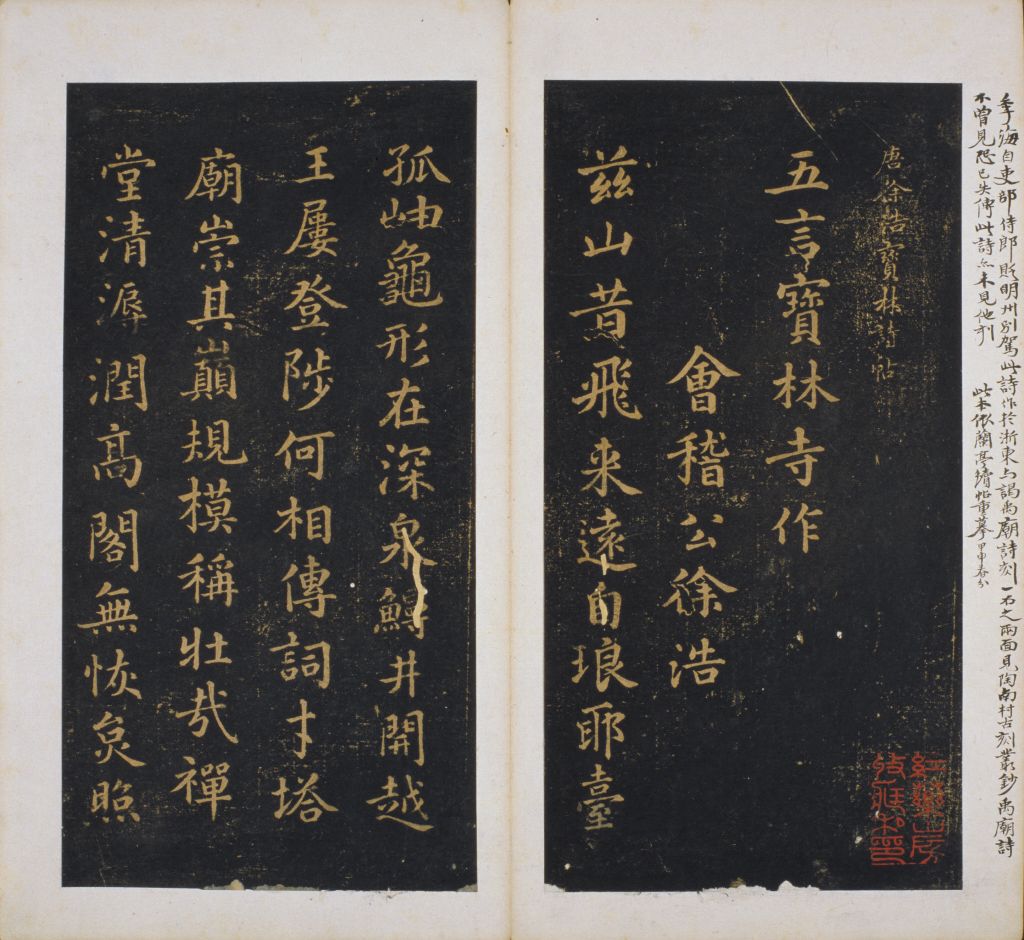 季海自吏部侍郎貶明州別駕此詩作於浙東与謁禹廟詩刻一石之兩面見陶南村古刻叢鈔禹廟詩
不曾見恐已失傳此詩亦未見他刻 此本依蘭亭續帖重摹甲申春分
唐徐浩寶林詩帖
五言寶林寺作
會稽公徐浩
茲山昔飛来遠自琅耶臺
孤岫龜形在深泉鰻井開越
王屢登陟何相傳詞才塔
廟崇其巔規模稱壯哉禪
堂清溽潤高閣無恢炱照